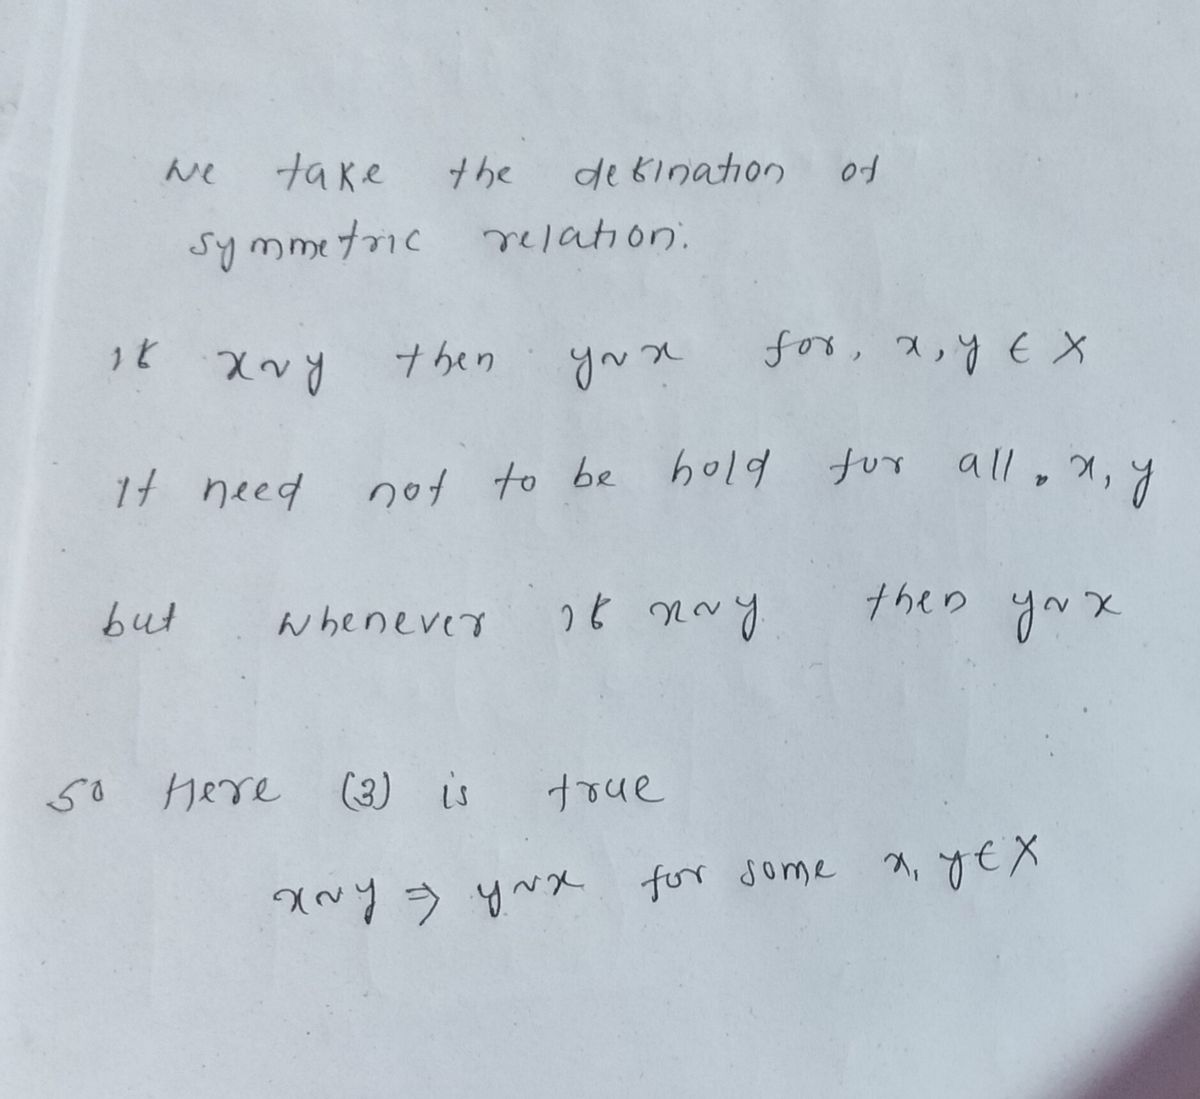 We take the defination of
symmetric relation.
if x~y then y~x for, x, y ∈ X
It need not to be hold for all x, y
but whenever if x~y then y~x
so Here (3) is true
x~y ⇒ y~x for some x, y ∈ X